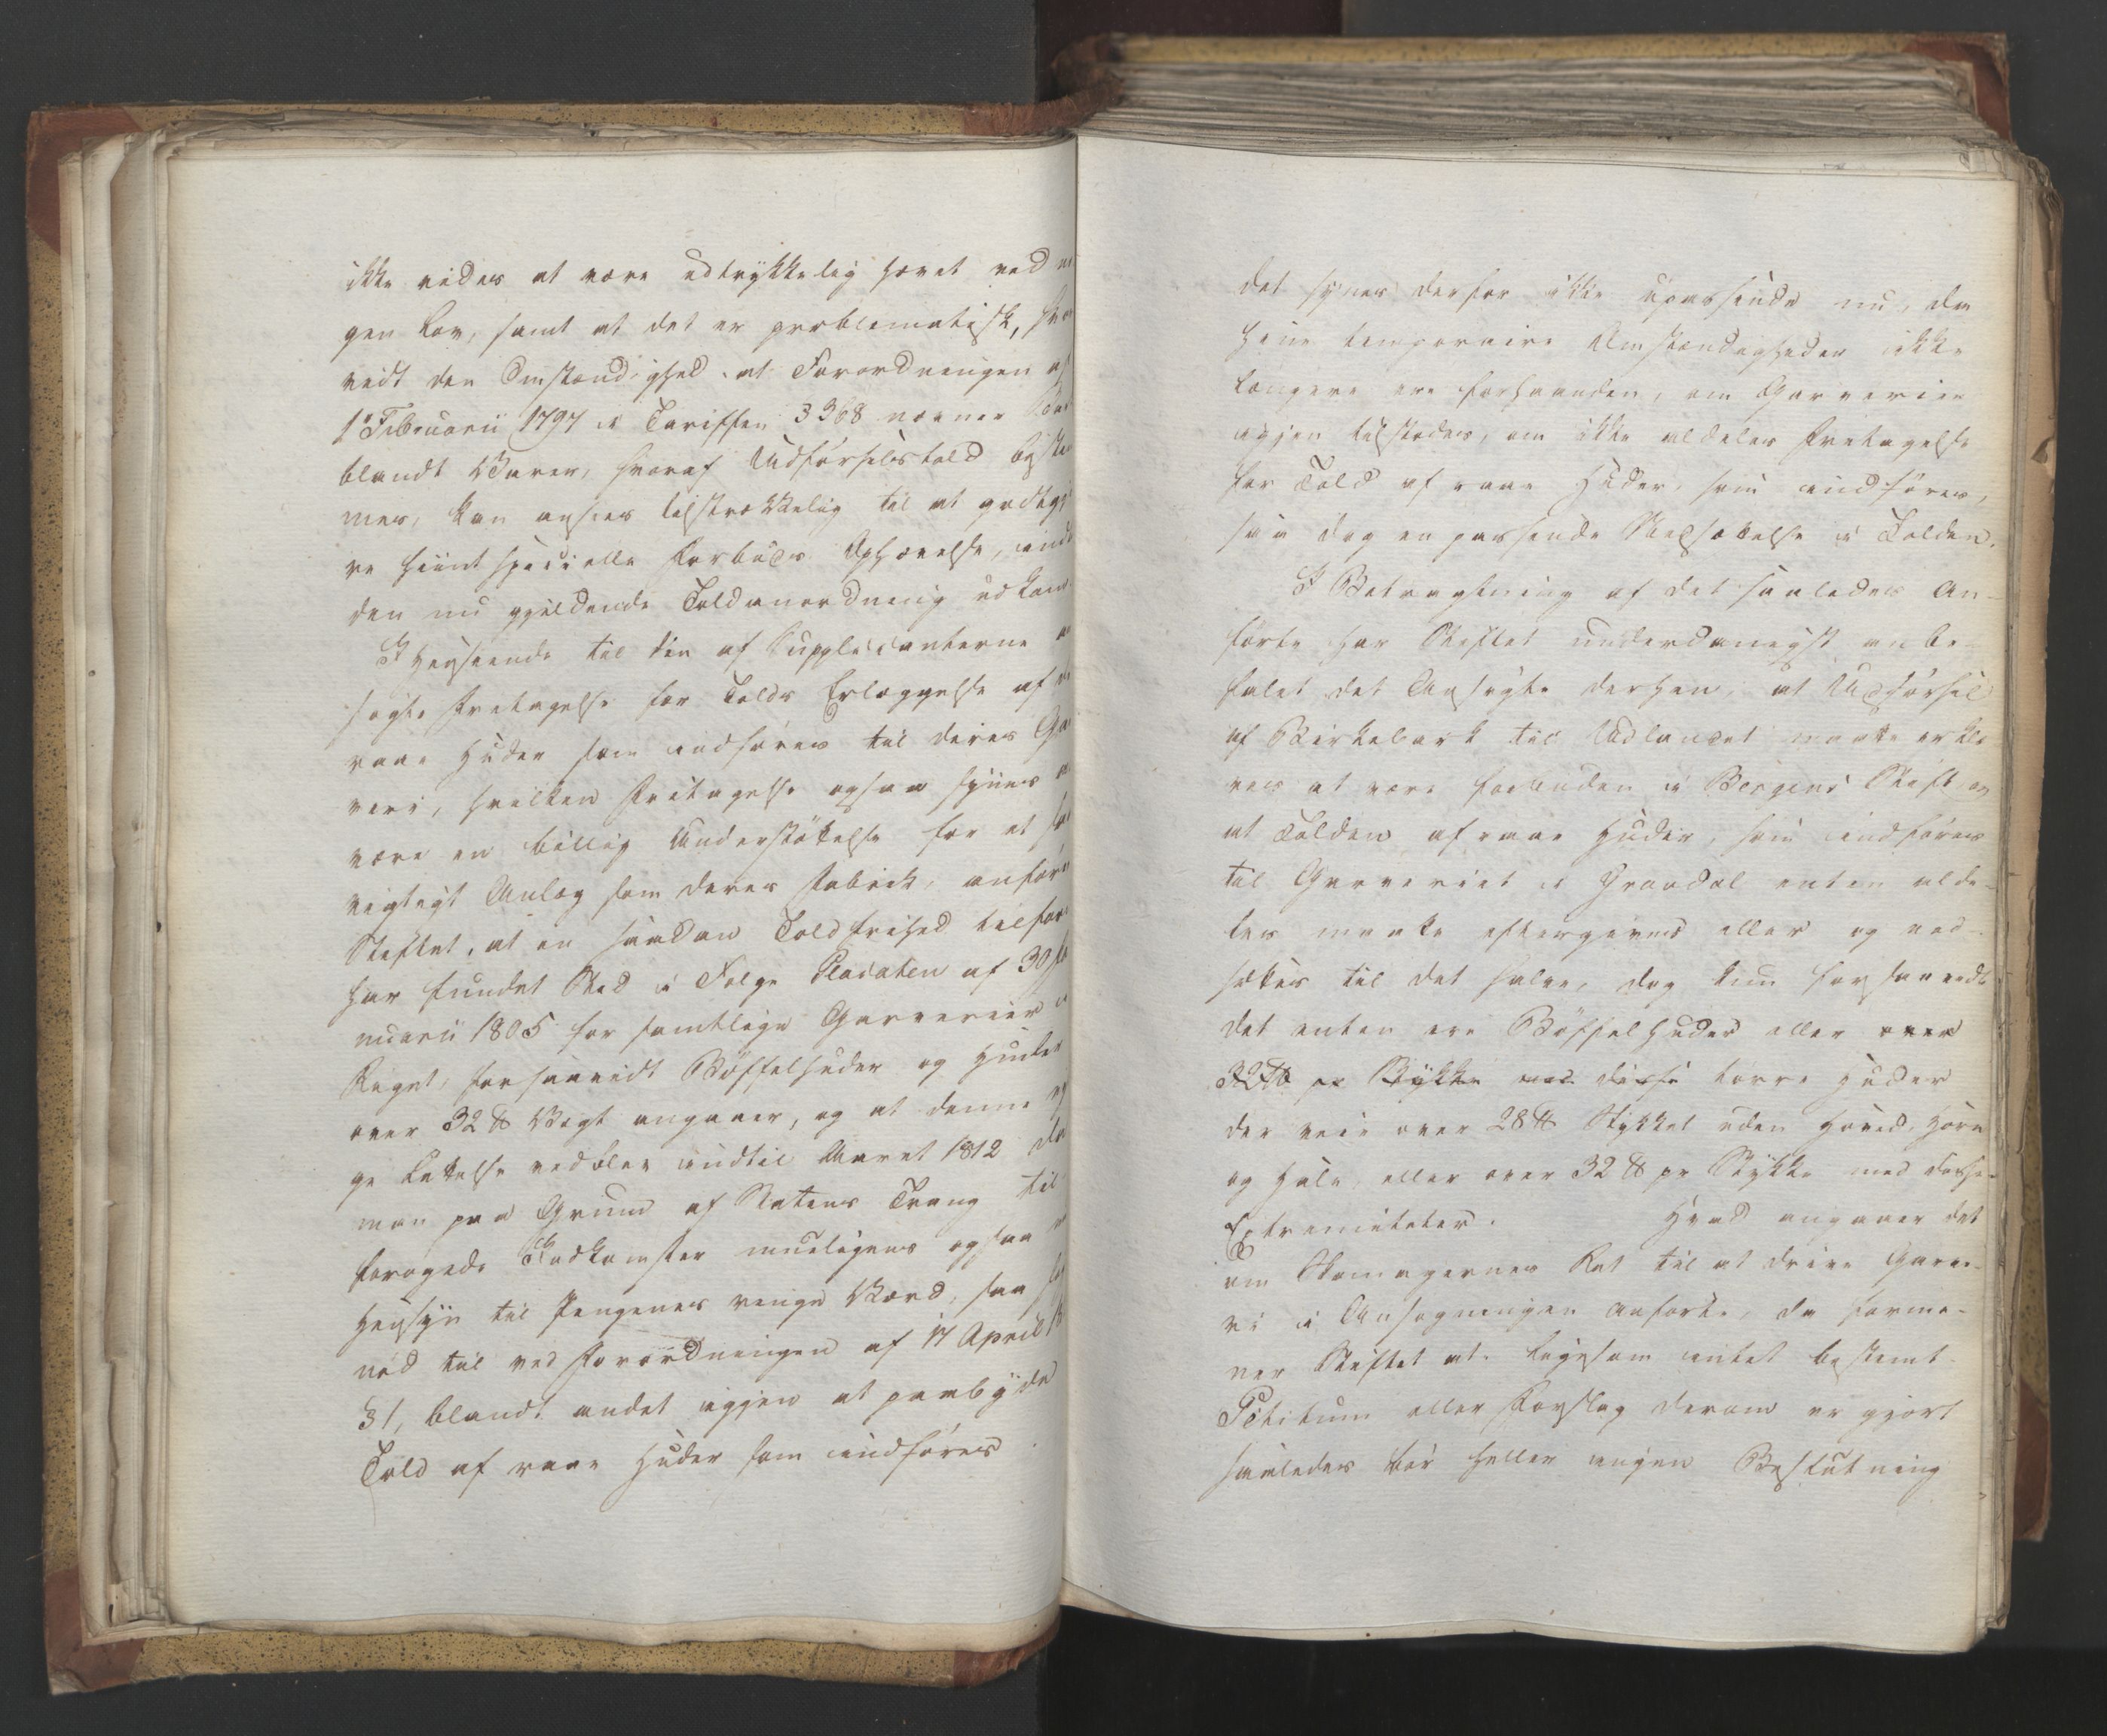 ikke vides at være udtrykkelig hævet ved no
gen Lov, samt at det er problematisk, hvor
vidt den Omstændighed at Forordningen af
1 Februarii 1797 i Tariffen 3368 nævner Bar
blandt Varer, hvoraf Udførselstold bestem
mes, kan ansees tilstrækkelig til at godtgjø
re hiint specielle Forbuds Ophævelse, inde
den nu gjeldende Toldanordning udkom.
I Henseende til den af Supplicanterne an
søgte Fritagelse for Tolds Erlæggelse af de
raae Huder som indføres til deres Gar
veri, hvilken Fritagelse ogsaa synes at
være en billig Understøttelse for et saa
vigtigt Anlæg som deres Fabrik, anfører
Stiftet, at en saadan Toldfrihed tilforn
har fundet Sted i Følge Placaten af 30 Ja
nuarii 1805 for samtlige Garverier i
Riget, forsaavidt Bøffelhuder og Huder
over 32 ℔ Vægt angaaer, og at denne
ge Lettelse vedblev indtil Aaret 1812 da
man paa Grund af Statens Trang til
forøgede Indkomster mueligens ogsaa
Hensyn til Pengenes ringe Værd, saa sig
nød til ved Forordningen af 17 April
§ 1, blandt andet igjen at paabyde
Told af raae Huder som indføres.
Det synes derfor ikke upassende nu, da
hine temporaire Omstændigheder ikke
længere ere forhaanden, om Garverier
igjen tilstodes, om ikke aldeles Fritagelse
for Told af raae Huder, som indføres,
saa dog en passende Nedsættelse i Tolden.
I Betragtning af det saaledes An-
førte har Stiftet underdanigst anbe-
falet det Ansøgte derhen, at Udførsel
af Birkebark til Udlandet maatte erklæ
res at være forbuden i Bergens Stift, og
at Tolden af raae Huder, som indføres
til Garveriet i Graadal enten alde-
les maatte eftergives eller og ned-
sættes til det halve, dog kun forsaavidt
det enten ere Bøffelhuder eller over
32 ℔ pr Stykke med disse tørre Huder
der veie over 28 ℔ Stykket uden Hoved, Horn
og Hale, eller over 32 ℔ pr Stykke med disse
Extremiteter. Hvad angaaer det
om Skomagernes Ret til at drive Garve-
ri i Ansøgningen Anførte, da forme-
ner Stiftet at ligesom intet bestemt
Petitum eller Forslag derom er gjort
saaledes bør heller ingen Beslutning